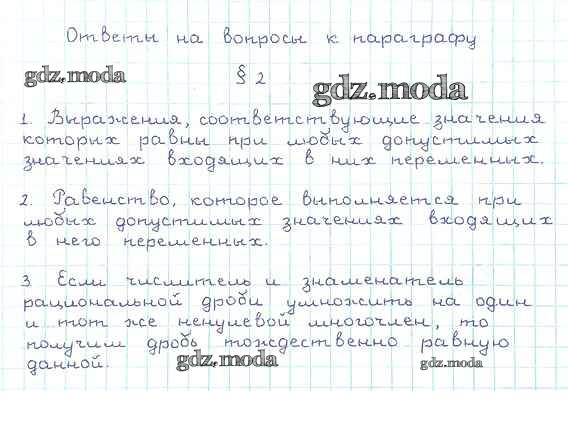 Ответы на вопросы к параграфу
gdz.moda § 2 gdz.moda
1. Выражения, соответствующие значения
которых равны при любых допустимых
значениях входящих в них переменных.
2. Равенство, которое выполняется при
любых допустимых значениях входящих
в него переменных.
3 Если числитель и знаменатель
рациональной дроби умножить на один
и тот же ненулевой многочлен, то
получим дробь тождественно равную
данной. gdz.moda gdz.moda